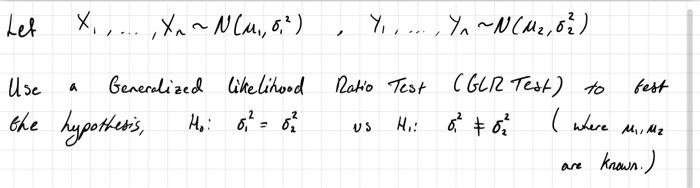 Let X₁, ..., Xₙ ~ N(μ₁, σ₁²) , Y₁, ..., Yₙ ~ N(μ₂, σ₂²)
Use a Generalized likelihood Ratio Test (GLR Test) to test
the hypothesis, H₀: σ₁² = σ₂² vs H₁: σ₁² ≠ σ₂² (where μ₁, μ₂
are known.)